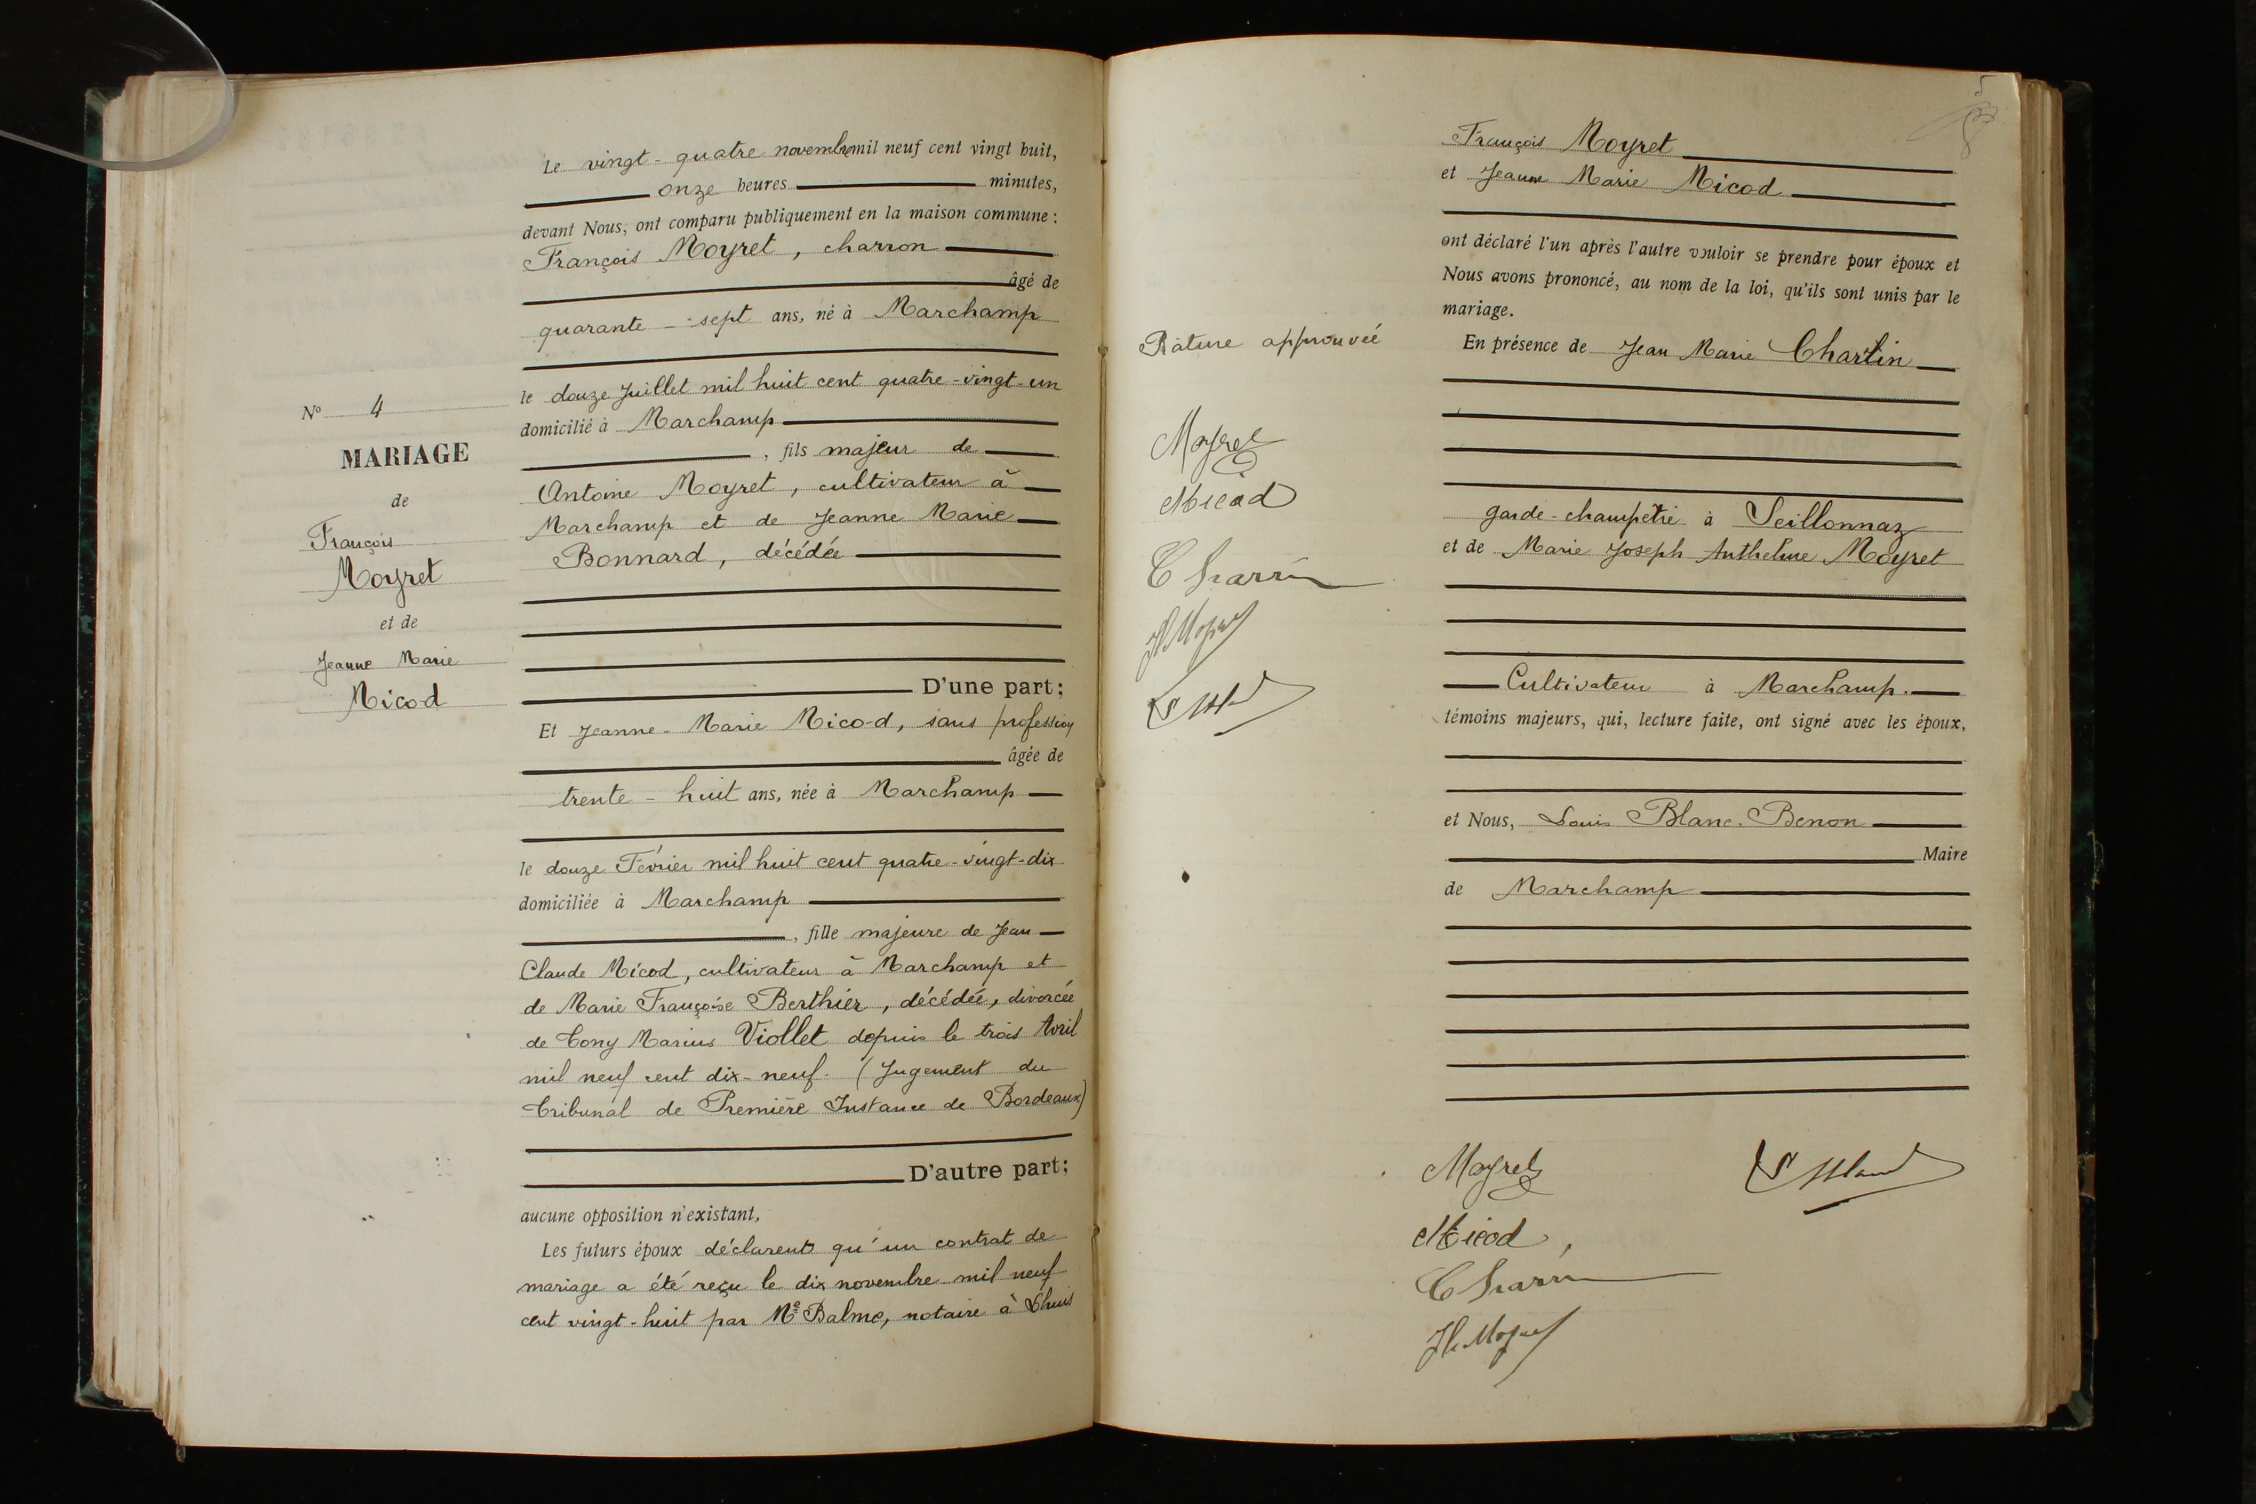 Le vingt-quatre novembre mil neuf cent vingt huit,
onze heures minutes,
devant Nous, ont comparu publiquement en la maison commune :
François Moyret, charron
âgé de
quarante-sept ans, né à Marchamp
le douze Juillet mil huit cent quatre-vingt-un
domicilié à Marchamp
, fils majeur de
Antoine Moyret, cultivateur à
Marchamp et de Jeanne Marie
Bonnard, décédée
D'une part;
Et Jeanne-Marie Micod, sans profession
âgée de
trente-huit ans, née à Marchamp
le douze Février mil huit cent quatre-vingt-dix
domiciliée à Marchamp
, fille majeure de Jean
Claude Micod, cultivateur à Marchamp et
de Marie Françoise Berthier, décédée, divorcée
de Tony Marius Viollet depuis le trois Avril
mil neuf cent dix-neuf. (Jugement du
Tribunal de Première Instance de Bordeaux)
D'autre part;
aucune opposition n'existant,
Les futurs époux déclarent qu'un contrat de
mariage a été reçu le dix novembre mil neuf
cent vingt-huit par Me Balme, notaire à Lhuis
N° 4
MARIAGE
de
François
Moyret
et de
Jeanne Marie
Micod
François Moyret
et Jeanne Marie Micod
ont déclaré l'un après l'autre vouloir se prendre pour époux et
Nous avons prononcé, au nom de la loi, qu'ils sont unis par le
mariage.
En présence de Jean Marie
garde-champêtre à Seillonnaz
et de Marie Joseph Anthelme Moyret
Cultivateur à Marchamp.
témoins majeurs, qui, lecture faite, ont signé avec les époux,
et Nous, Louis Blanc-Benon
Maire
de Marchamp
Rature approuvée
Moyret
Micod
Moyret
Micod